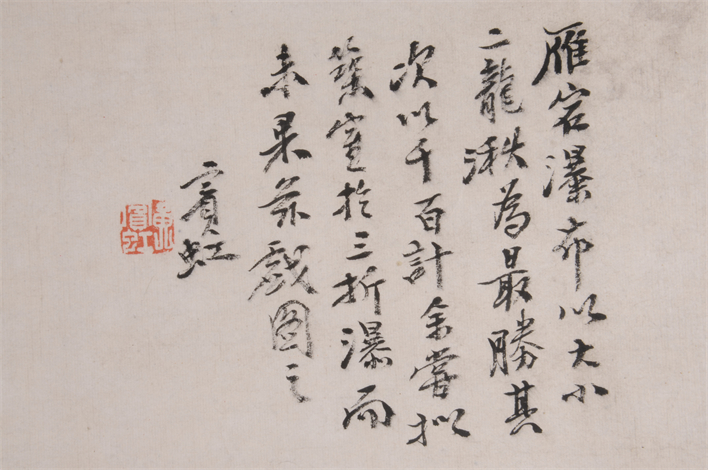 雁宕瀑布以大小
二龍湫為最勝其
次以千百計余嘗拟
築室於三折瀑而
未果茲戲圖之
賓虹
黃賓虹